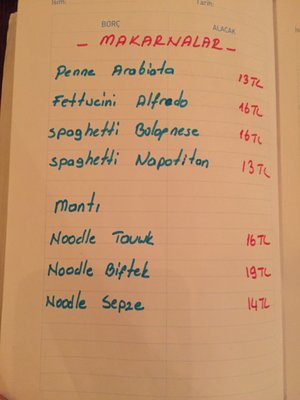 İsim: Tarih:
BORÇ ALACAK
- MAKARNALAR -
Penne Arabiata 13 TL
Fettucini Alfredo 16 TL
spaghetti Bolognese 16 TL
spaghetti Napolitan 13 TL
Mantı
Noodle Tavuk 16 TL
Noodle Biftek 19 TL
Noodle Sepze 14 TL